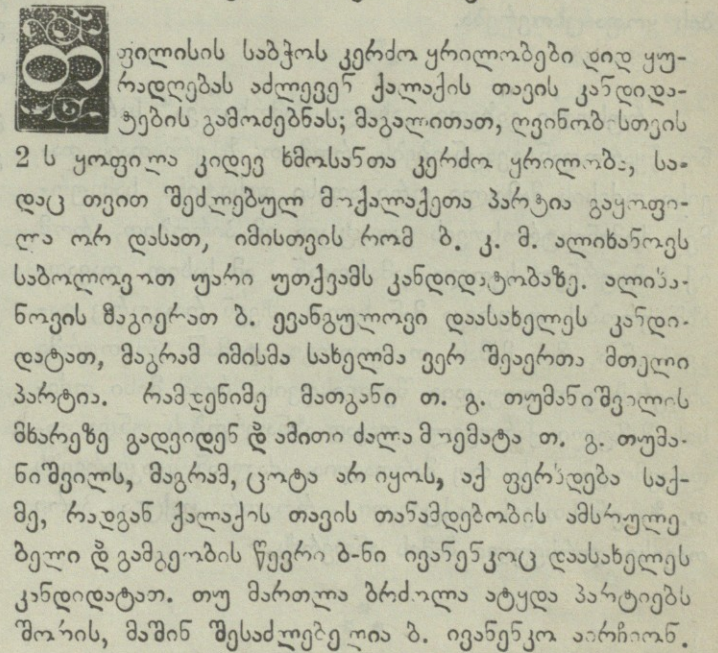 ტფილისის საბჭოს კერძო ყრილობები დიდ ყუ-
რადღებას აძლევენ ქალაქის თავის კანდიდა-
ტების გამოძებნას; მაგალითათ, ღვინობისთვის
2 ს ყოფილა კიდევ ხმოსანთა კერძო ყრილობა, სა-
დაც თვით შეძლებულ მოქალაქეთა პარტია გაყოფი-
ლა ორ დასათ, იმისთვის რომ ბ. კ. მ. ალიხანოვს
საბოლოვოთ უარი უთქვამს კანდიდატობაზე. ალიხა-
ნოვის მაგიერათ ბ. ევანგულოვი დაასახელეს კანდი-
დატათ, მაგრამ იმისმა სახელმა ვერ შეაერთა მთელი
პარტია. რამდენიმე მათგანი თ. გ. თუმანიშვილის
მხარეზე გადვიდენ და ამითი ძალა მოემატა თ. გ. თუმა-
ნიშვილს, მაგრამ, ცოტა არ იყოს, აქ ფერხდება საქ-
მე, რადგან ქალაქის თავის თანამდებობის ამსრულე
ბელი და გამგეობის წევრი ბ-ნი ივანენკოც დაასახელეს
კანდიდატათ. თუ მართლა ბრძოლა ატყდა პარტიებს
შორის, მაშინ შესაძლებელია ბ. ივანენკო აირჩიონ.